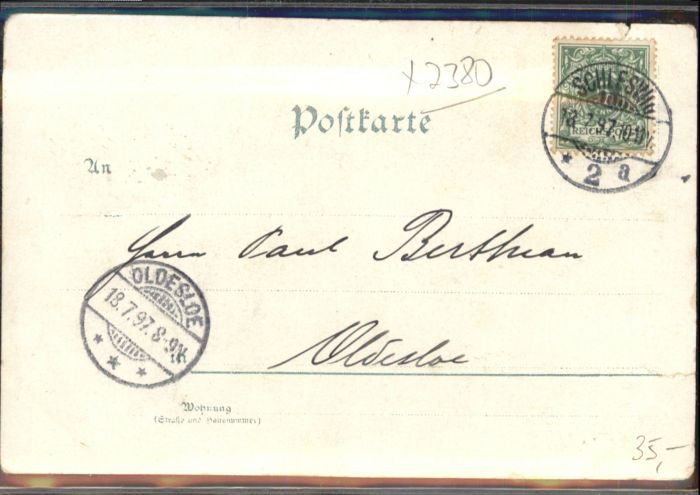 x2380
Postkarte
SCHLESWIG
18.7.97.
REICHSPOST
* 2 a
An
Herrn Paul Bertheau
OLDESLOE
18.7.97.8-9N.
* * *
Oldesloe
Wohnung
(Straße und Hausnummer)
35,-